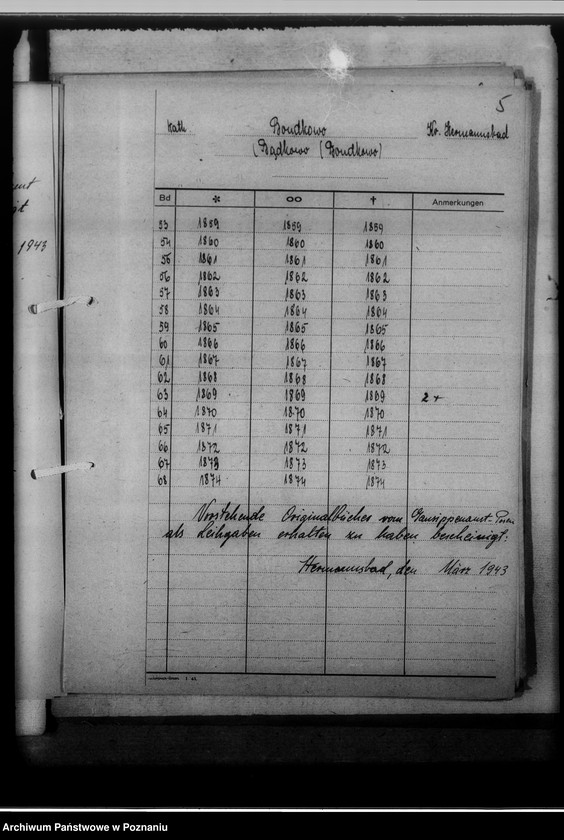 5
kath. Bondkowo Kr. Hermannsbad
(Bądkowo (Bondkowo)
Bd * ∞ † Anmerkungen
53 1859 1859 1859
54 1860 1860 1860
55 1861 1861 1861
56 1862 1862 1862
57 1863 1863 1863
58 1864 1864 1864
59 1865 1865 1865
60 1866 1866 1866
61 1867 1867 1867
62 1868 1868 1868
63 1869 1869 1869 2+
64 1870 1870 1870
65 1871 1871 1871
66 1872 1872 1872
67 1873 1873 1873
68 1874 1874 1874
Vorstehende Originalbücher vom Gausippenamt Posen
als Leihgaben erhalten zu haben bescheinigt:
Hermannsbad, den März 1943
1943
Archiwum Państwowe w Poznaniu